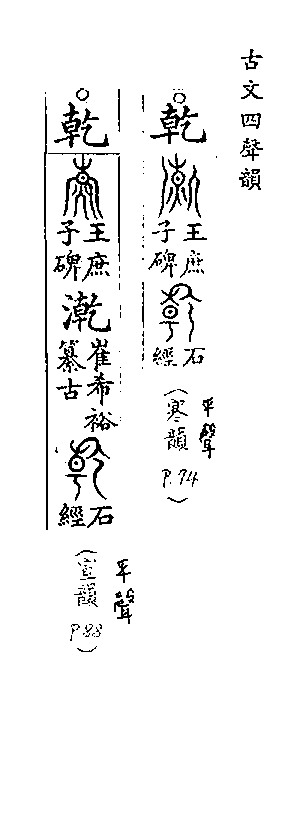 古文四聲韻
乾
王庶子碑
石經
平聲
(寒韻 P.94)
乾
王庶子碑
漧
崔希裕纂古
石經
平聲
(宣韻 P88)